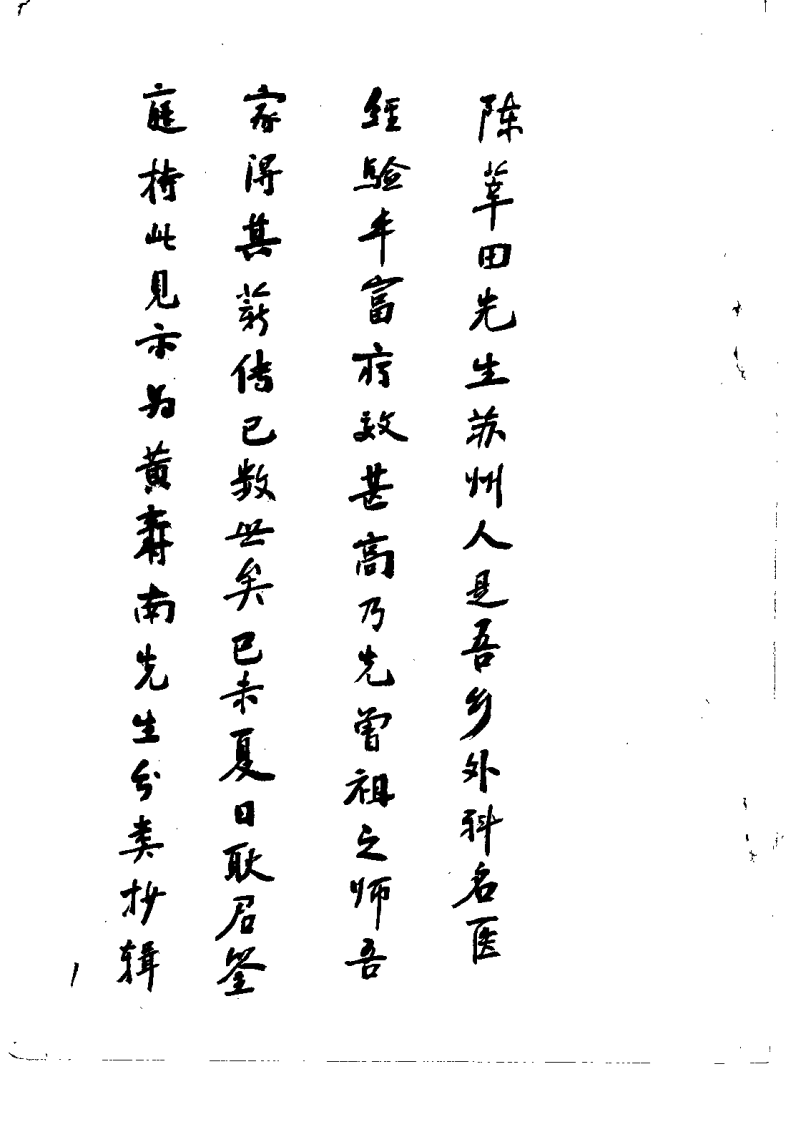 陈莘田先生苏州人是吾乡外科名医
经验丰富疗效甚高乃先曾祖之师吾
家得其薪传已数世矣己未夏日耿君鉴
庭持此见示为黄寿南先生分类抄辑
1